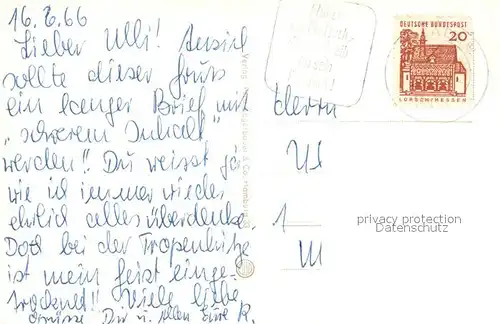 16.6.66
Lieber Ulli! Ansich
sollte dieser Gruss
ein langer Brief mit
"schwerem Inhalt"
werden!! Du weisst ja
wie ich immer wieder
ehrlich alles überdenke.
Doch bei der Tropenhitze
ist mein Geist einge-
trocknet!! Viele liebe
Grüsse Dir u. allen Eure R.
Herrn
Ul
1
M
DEUTSCHE BUNDESPOST
20
LORSCH/HESSEN
privacy protection
Datenschutz